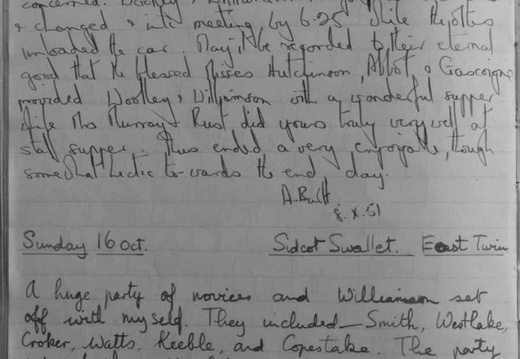 concerned. Woolley, Williamson
& changed & into meeting by 6.25 while the others
unloaded the car. May it be regorded to their eternal
good that the blessed Misses Hutchinson, Abbot, & Gascoigne
provided Woolley & Williamson with a wonderful supper
while Mrs Murray & Rust did yours truly very well at
staff supper. Thus ended a very enjoyable, though
somewhat hectic towards the end day.
8.X.51
Sunday 16 Oct. Sidcot Swallet. East Twin
A huge party of novices and Williamson set
off with myself. They included Smith, Westlake,
Croker, Watts, Keeble, and Copestake. The party